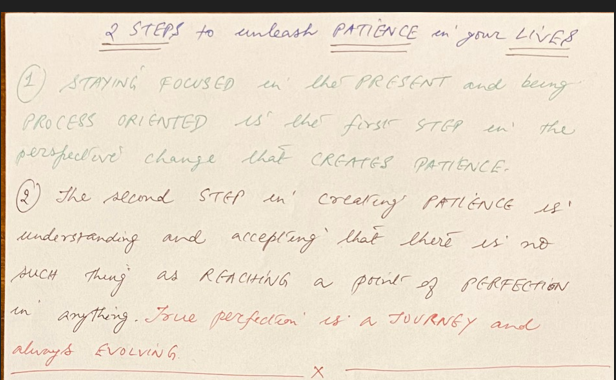 2 STEPS to unleash PATIENCE in your LIVES
1 STAYING FOCUSED in the PRESENT and being
PROCESS ORIENTED is the first STEP in the
perspective change that CREATES PATIENCE.
2 The second STEP in creating PATIENCE is
understanding and accepting that there is no
SUCH thing as REACHING a point of PERFECTION
in anything. True perfection is a JOURNEY and
always EVOLVING
x